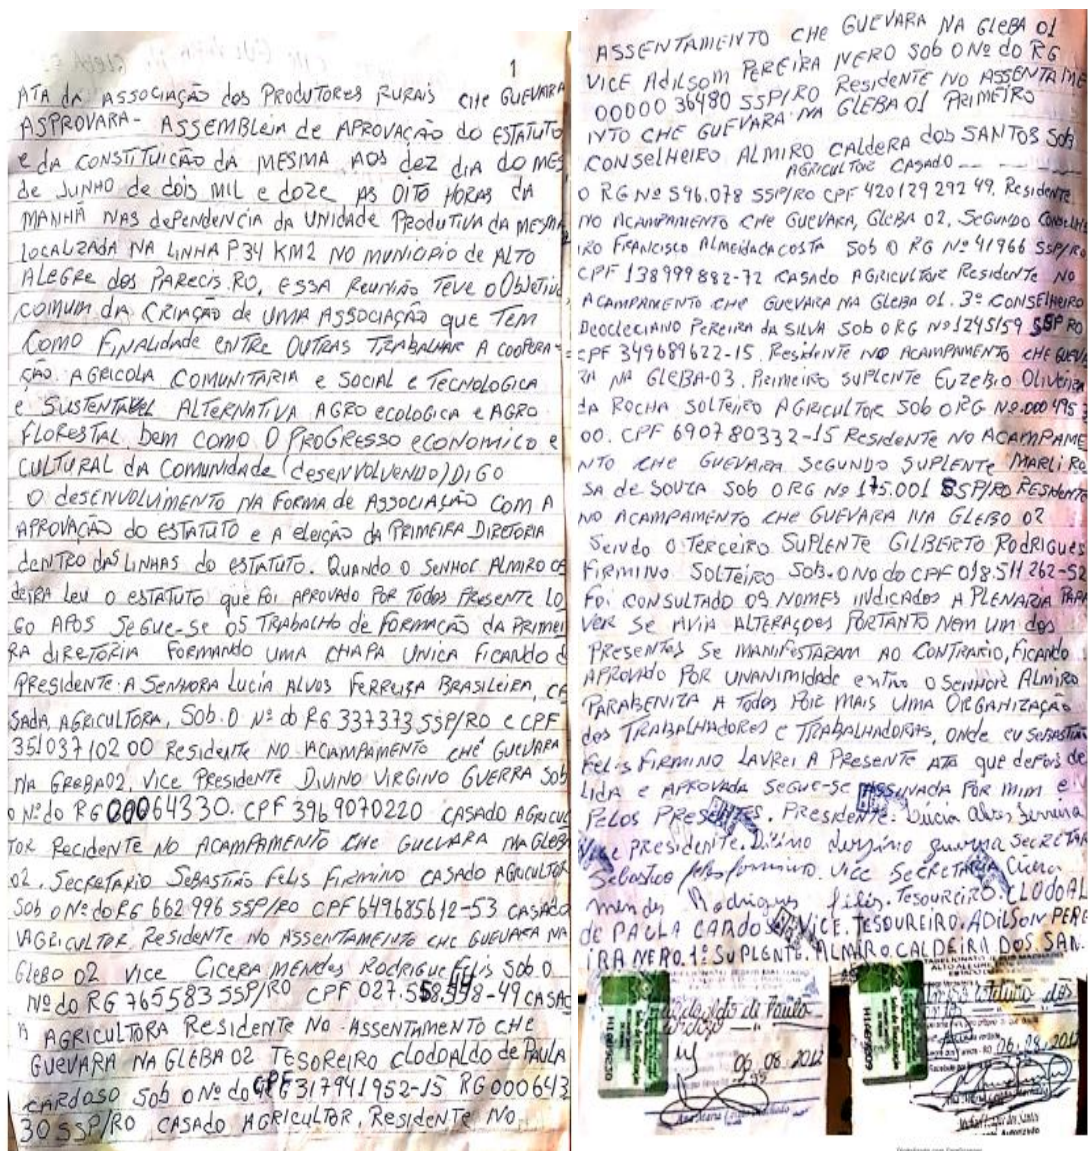 1
ATA da ASSOCIAÇÃO dos PRODUTORES RURAIS CHE GUEVARA
ASPROVARA - ASSEMBLEIA de APROVAÇÃO do ESTATUTO
e da CONSTITUIÇÃO da MESMA, AOS dez dia do MES
de JUNHO de dois MIL e doze AS OITO HORAS da
MANHÃ NAS dePENDENCIA da UNIDADE PRODUTIVA da MESMA
LOCALIZADA NA LINHA P34 KM2 NO MUNICÍPIO de ALTO
ALEGRE dos PARECIS.RO, ESSA REUNIÃO TEVE O Objetivo
COMUM da CRIAÇÃO de UMA ASSOCIAÇÃO que TEM
COMO FINALIDADE ENTRE OUTRAS TRABALHAR A COOPERA-
ÇÃO. AGRICOLA COMUNITARIA e SOCIAL e TECNOLOGICA
e SUSTENTAVEL ALTERNATIVA AGRO ecologica e AGRO
FLORESTAL bem como O PROGRESSO ECONOMICO e
CULTURAL da COMUNIDADE (desENVOLVENDO) DIGO
O desENVOLVIMENTO NA FORMA de ASSOCIAÇÃO COM A
APROVAÇÃO do ESTATUTO e A eleição da PRIMEIRA DIRETORIA
dENTRO DAS LINHAS do eSTATUTO. QUANDO O SENHOR ALMIRO CA
deiRA Leu O ESTATUTO que FOI APROVADO POR TODOS PRESENTE LO
GO APOS SEGUE-SE OS TRABALHO de FORMAÇÃO da PRIMEI
RA dIRETORIA FORMANDO UMA CHAPA UNICA FICANDO
PRESIDENTE A SENHORA LUCIA ALVES FERREIRA BRASILEIRA, CA
SADA, AGRICULTORA, SOB.O Nº do RG 337373 SSP/RO e CPF
35103710200 Residente NO ACAMPAMENTO CHE GUEVARA
NA GREBA02, VICE PRESIDENTE DIVINO VIRGINO GUERRA SOB
O Nº do RG 00064330. CPF 3969070220 CASADO AGRICUL
TOR RECIDENTE NO ACAMPAMENTO CHE GUEVARA NA GLEBA
02. SECRETARIO SEBASTIÃO FELIS FIRMINO CASADO AGRICULTOR
SOB O Nº do RG 662 996 SSP/RO CPF 649685612-53 CASADO
AGRICULTOR, RESIDENTE NO ASSENTAMENTO CHE GUEVARA NA
GLEBO 02 VICE CICERA MENDES RODRIGUES FELIS SOB.O
Nº do RG 765583 SSP/RO CPF 027.558.598-49 CASAD
A AGRICULTORA RESIDENTE NO ASSENTAMENTO CHE
GUEVARA NA GLEBA 02 TESOREIRO CLODOALDO de PAULA
CARDOSO SOB O Nº do CPF 317941952-15 RG 000643
30 SSP/RO CASADO AGRICULTOR, Residente NO
ASSENTAMENTO CHE GUEVARA NA GLEBA 01
VICE AdILSOM PEREIRA NERO SOB O Nº do RG
0000036480 SSP/RO Residente NO ASSENTAME
NTO CHE GUEVARA NA GLEBA 01 PRIMEIRO
CONSELHEIRO ALMIRO CALDERA dos SANTOS SOB
AGRICULTOR CASADO
O RG Nº 596.078 SSP/RO CPF 420129 292 49. Residente
NO ACAMPAMENTO CHE GUEVARA, GLEBA 02, SEGUNDO CONSELHE
IRO FRANCISCO ALMEIDA da COSTA SOB O RG Nº 41966 SSP/RO
CPF 138999882-72 CASADO AGRICULTOR Residente NO
ACAMPAMENTO CHE GUEVARA NA GLEBA 01. 3º CONSELHEIRO
DEOCLECIANO PEREIRA da SILVA SOB O RG Nº 1245159 SSP RO
CPF 349689622-15. Residente NO ACAMPAMENTO CHE GUEVA
RA NA GLEBA-03. PRIMEIRO SUPLENTE EUZEBIO OLIVEIRA
da ROCHA SOLTEIRO AGRICULTOR SOB O RG Nº.000495
00. CPF 690780332-15 Residente NO ACAMPAME
NTO CHE GUEVARA SEGUNDO SUPLENTE MARLI RO
SA de SOUZA SOB O RG Nº 175.001 SSP/RO RESIDENTE
NO ACAMPAMENTO CHE GUEVARA NA GLEBO 02
Sendo O TERCEIRO SUPLENTE GILBERTO RODRIGUES
FIRMINO SOLTEIRO SOB.O No do CPF 018.511 262-52
FOI CONSULTADO OS NOMES INDICADOS A PLENARIA PARA
VER SE AVIA ALTERAÇOES PORTANTO NEM UM dos
PRESENTES SE MANIFESTARAM AO CONTRARIO, FICANDO
APROVADO POR UNANIMIDADE então O SENHOR ALMIRO
PARABENIZA A TODOS POR MAIS UMA ORGANIZAÇÃO
dos TRABALHADORES e TRABALHADORAS, ONDE EU SEBASTIÃO
FELIS FIRMINO LAVREI A PRESENTE ATA que depois de
LIDA e APROVADA SEGUE-SE ASSINADA POR MIM e
PELOS PRESENTES. PRESIDENTE. Lúcia Alves Ferreira
VICE PRESIDENTE. Divino Virgínio guerra SECRETA
Sebastiao felis firmino. VICE SECRETA Cicera
mendes Rodrigues felis. TESOUREIRO. CLODOAL
dE PAULA CARDOSO VICE. TESOUREIRO. ADILSON PERE
IRA NERO. 1º SUPLENTE. ALMIRO CALDEIRA DOS. SAN-
06.08.2012
06.08.2012